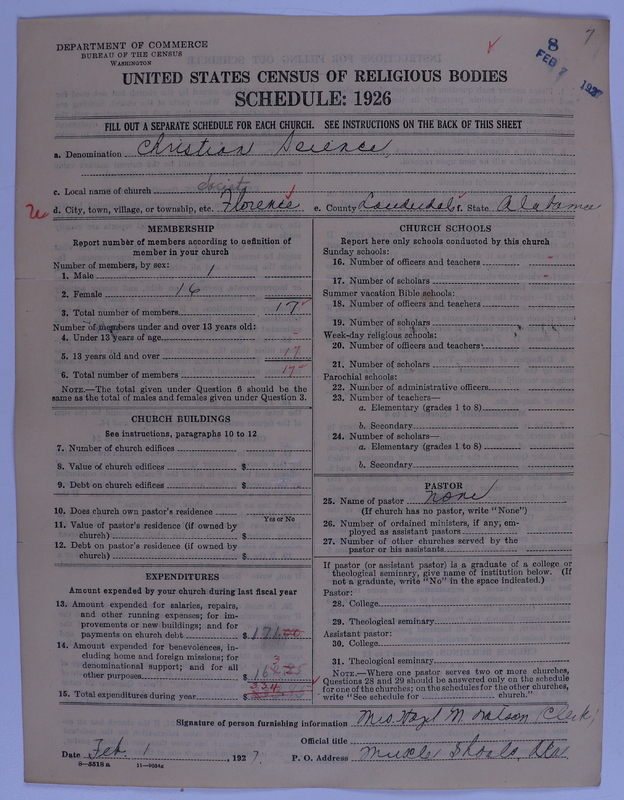 DEPARTMENT OF COMMERCE
BUREAU OF THE CENSUS
WASHINGTON
8
FEB 7 1927
7
UNITED STATES CENSUS OF RELIGIOUS BODIES
SCHEDULE: 1926
FILL OUT A SEPARATE SCHEDULE FOR EACH CHURCH. SEE INSTRUCTIONS ON THE BACK OF THIS SHEET
a. Denomination Christian Science
c. Local name of church Society
d. City, town, village, or township, etc. Florence e. County Lauderdale f. State Alabama
MEMBERSHIP
Report number of members according to definition of
member in your church
Number of members, by sex:
1. Male 1
2. Female 16
3. Total number of members 17
Number of members under and over 13 years old:
4. Under 13 years of age
5. 13 years old and over 17
6. Total number of members 17
NOTE.—The total given under Question 6 should be
same as the total of males and females given under Question 3.
CHURCH BUILDINGS
See instructions, paragraphs 10 to 12
7. Number of church edifices
8. Value of church edifices $
9. Debt on church edifices $
10. Does church own pastor's residence
Yes or No
11. Value of pastor's residence (if owned by
church) $
12. Debt on pastor's residence (if owned by
church) $
EXPENDITURES
Amount expended by your church during last fiscal year
13. Amount expended for salaries, repairs,
and other running expenses; for im-
provements or new buildings; and for
payments on church debt $ 171.00
14. Amount expended for benevolences, in-
cluding home and foreign missions; for
denominational support; and for all
other purposes $
15. Total expenditures during year $ 334
CHURCH SCHOOLS
Report here only schools conducted by this church
Sunday schools:
16. Number of officers and teachers
17. Number of scholars
Summer vacation Bible schools:
18. Number of officers and teachers
19. Number of scholars
Week-day religious schools:
20. Number of officers and teachers
21. Number of scholars
Parochial schools:
22. Number of administrative officers
23. Number of teachers—
a. Elementary (grades 1 to 8)
b. Secondary
24. Number of scholars—
a. Elementary (grades 1 to 8)
b. Secondary
PASTOR
25. Name of pastor none
(If church has no pastor, write "None")
26. Number of ordained ministers, if any, em-
ployed as assistant pastors
27. Number of other churches served by the
pastor or his assistants
If pastor (or assistant pastor) is a graduate of a college or
theological seminary, give name of institution below. (If
not a graduate, write "No" in the space indicated.)
Pastor:
28. College
29. Theological seminary
Assistant pastor:
30. College
31. Theological seminary
NOTE.—Where one pastor serves two or more churches,
Questions 28 and 29 should be answered only on the schedule
for one of the churches; on the schedules for the other churches,
write "See schedule for church."
Signature of person furnishing information Mrs. Hazel M. Watson (Clerk)
Official title
Date Feb. 1, 1927. P. O. Address Muscle Shoals, Ala
8-5518 a 11-9034a